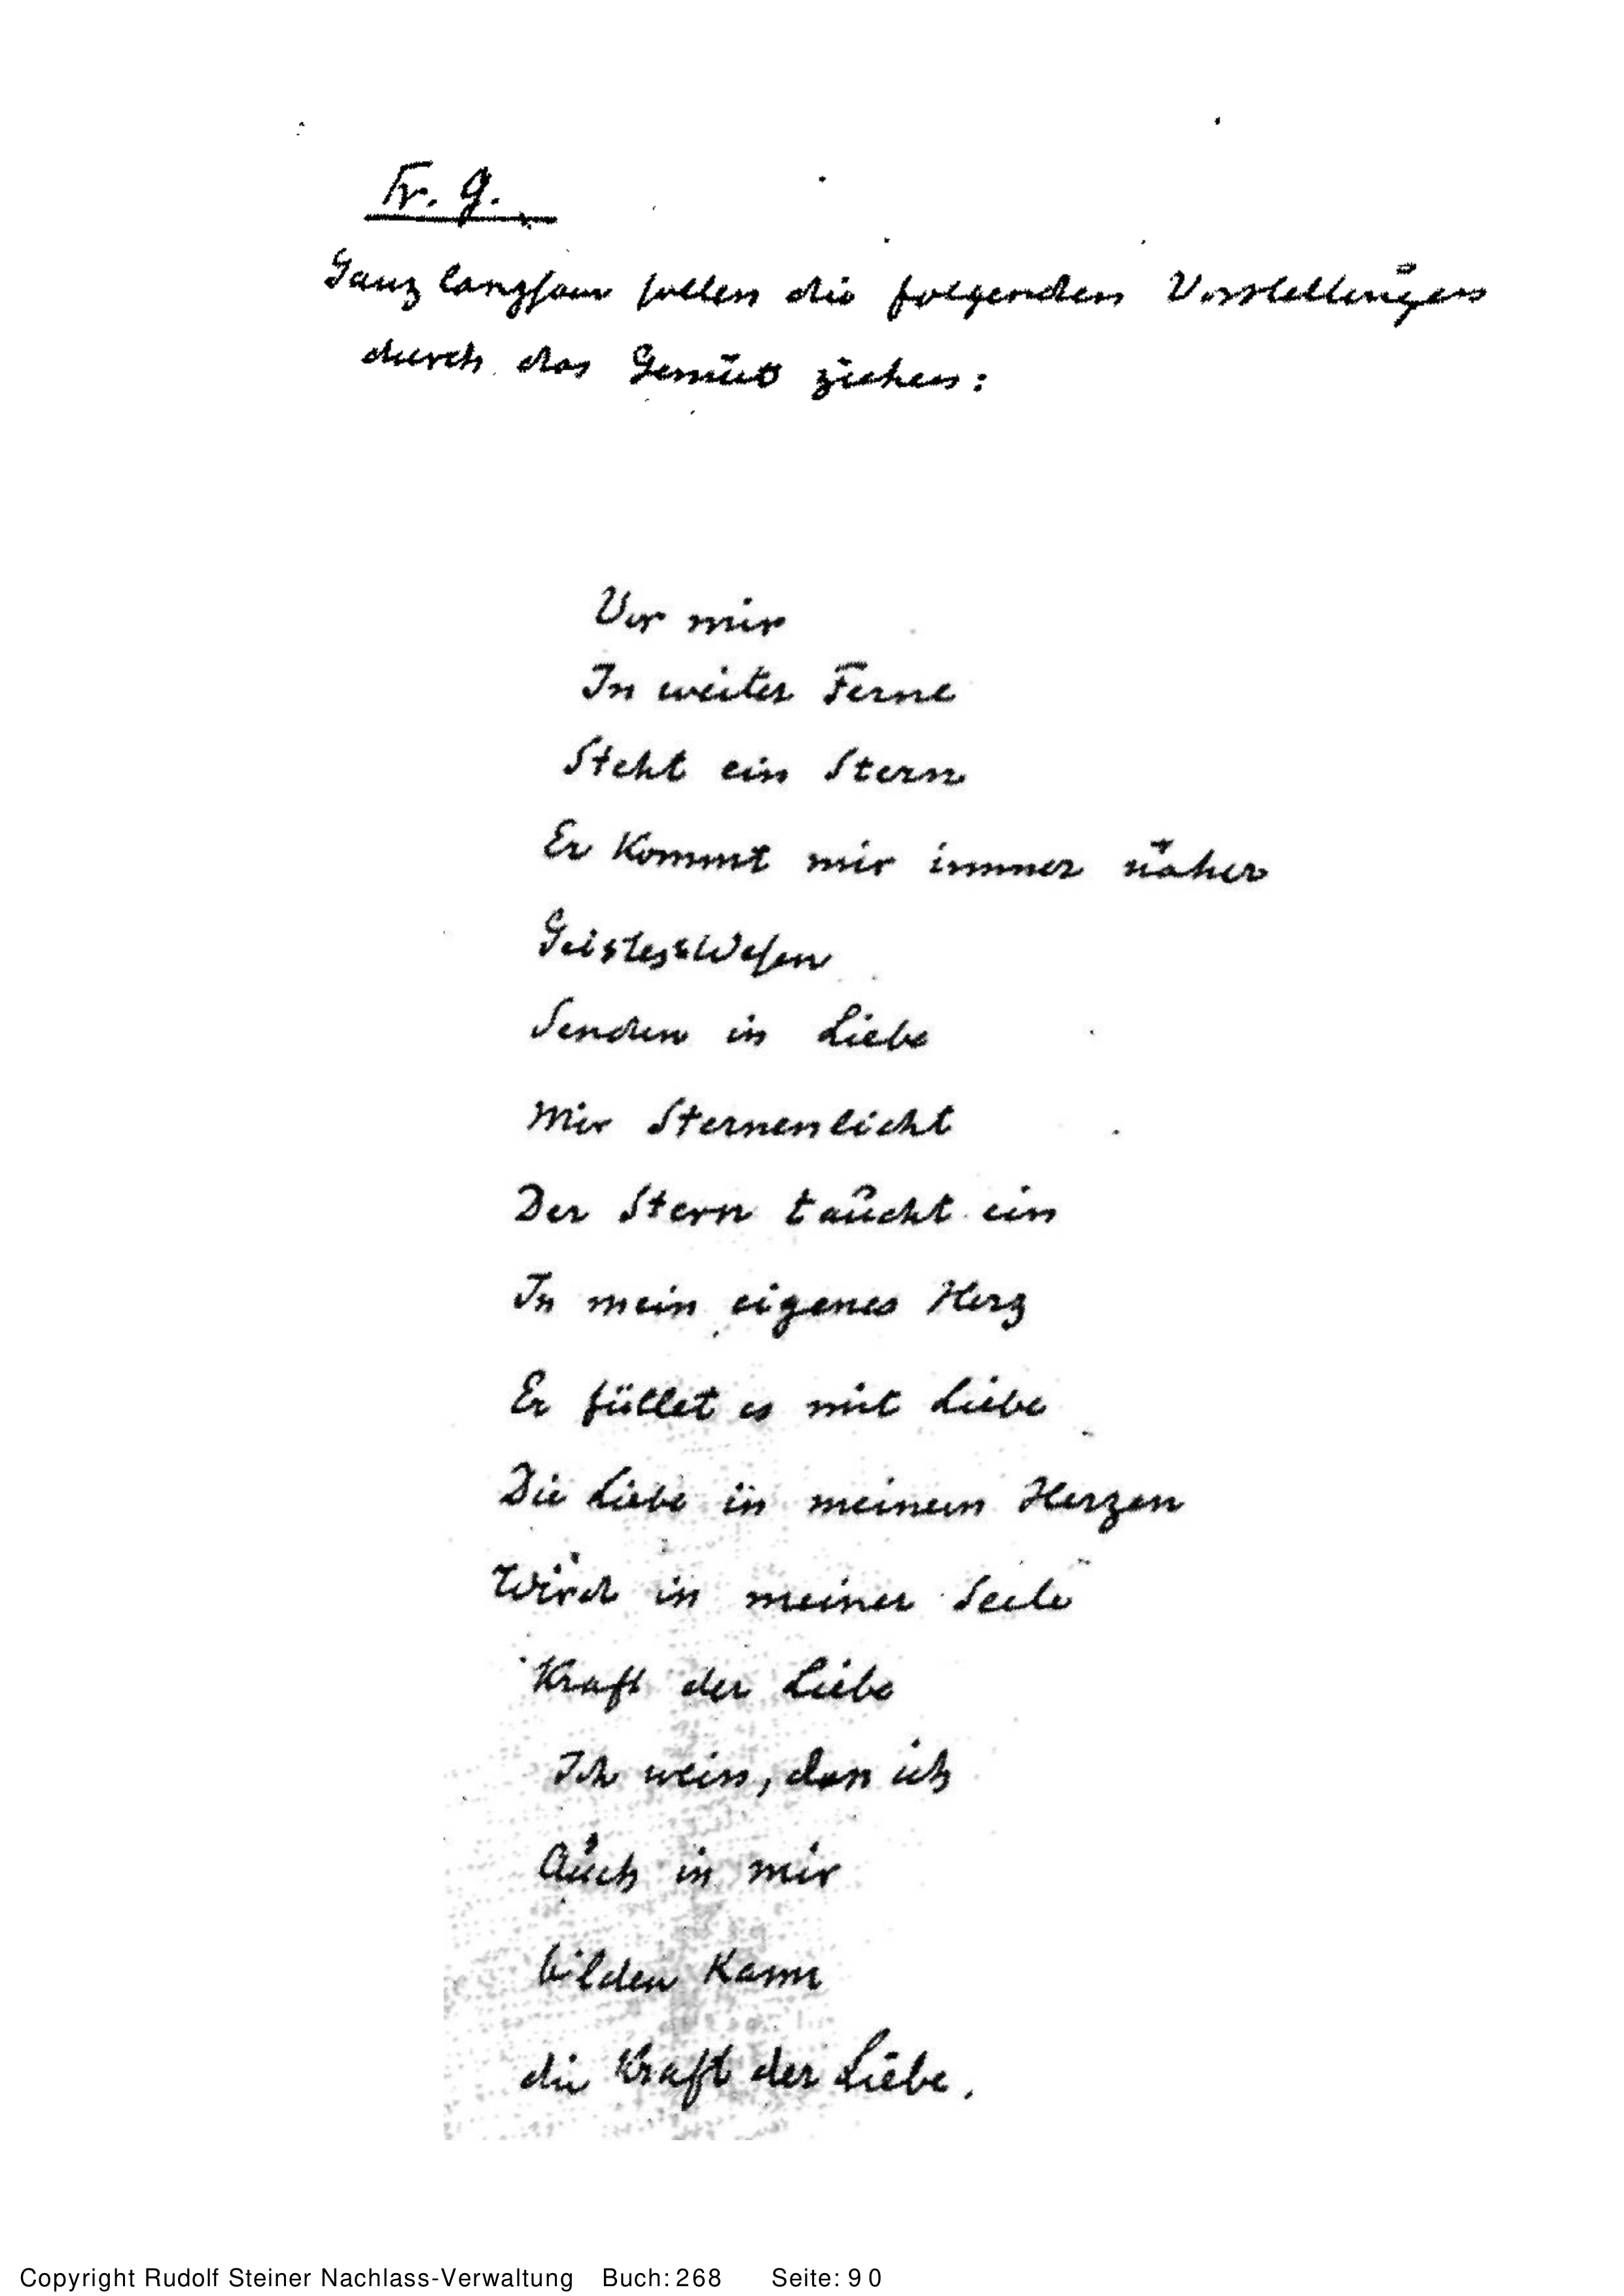 Fr. G.
Ganz langsam sollen die folgenden Vorstellungen
durch das Gemüt ziehen:
Vor mir
In weiter Ferne
Steht ein Stern
Er kommt mir immer näher
Geistes-Wesen
Senden in Liebe
Mir Sternenlicht
Der Stern taucht ein
In mein eigenes Herz
Er füllet es mit Liebe
Die Liebe in meinem Herzen
Wird in meiner Seele
Kraft der Liebe
Ich weiss, dass ich
Auch in mir
bilden kann
die Kraft der Liebe.
Copyright Rudolf Steiner Nachlass-Verwaltung Buch: 268 Seite: 90